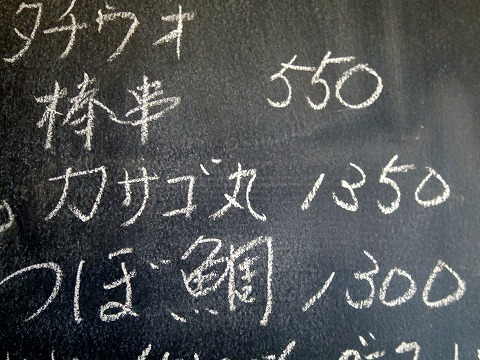 タチウオ
棒串 550
カサゴ丸 1350
つぼ鯛 1300